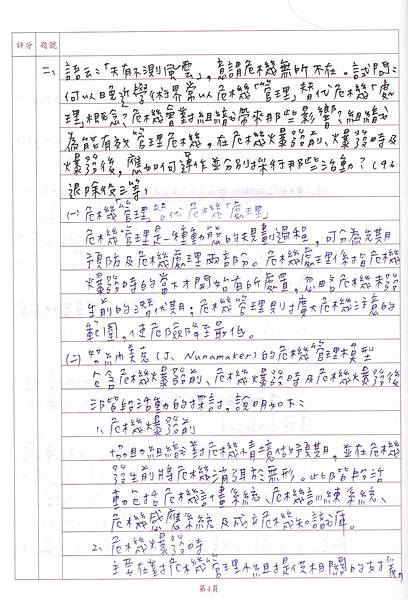 評分 題號
二、 語云:「天有不測風雲」，意謂危機無所不在。試問：
何以晚近學術界常以危機「管理」替代危機「處
理」概念？危機會對組織帶來那些影響？組織
為能有效管理危機，在危機爆發前、爆發時及
爆發後，應如何運作並分別採行那些活動？(96
退除役三等)
(一) 危機「管理」替代危機「處理」
危機管理是一種動態的規劃過程，可分為災難
預防及危機處理兩部份。危機處理係指危機
爆發時的當下才開始有所處置，忽略危機未發
生前的潛伏期；危機管理則擴大危機注意的
範圍，使危險降至最低。
(二) 努納美克(J. Nunamaker)的危機管理模型
包含危機爆發前、危機爆發時及危機爆發後
三階段活動的探討，說明如下：
1. 危機爆發前
協助組織對危機情境做預測，並在危機
發生前將危機消弭於無形。此階段活
動包括危機計畫系統、危機訓練系統、
危機感應系統及成立危機知識庫。
2. 危機爆發時
主要在對危機管理小組提供相關的支援
第4頁